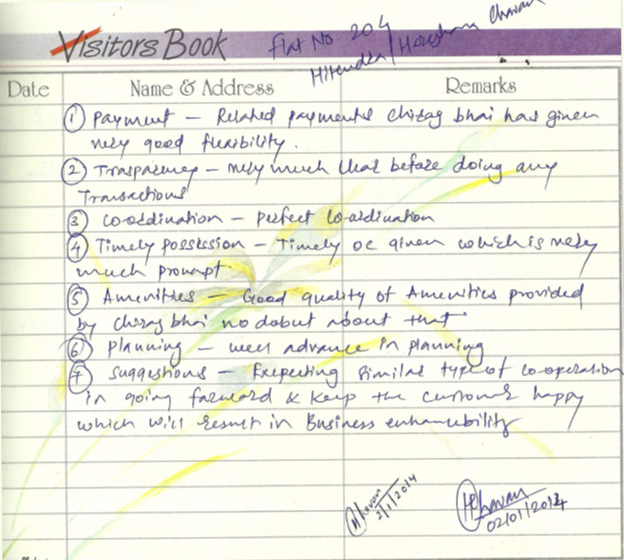 Visitors Book
Flat No 204
Hitendra / Hareshama Chavan
Date Name & Address Remarks
① Payment – Related payments chirag bhai has given
very good flexibility.
② Trasparency – very much clear before doing any
Transactions
③ co-ordination – perfect co-ordination
④ Timely possession – Timely oc given which is very
much prompt.
⑤ Amenities – Good quality of Amenities provided
by chirag bhai no dobut about that
⑥ planning – well advance in planning
⑦ suggestions – Expecting similar type of co-operation
in going forward & keep the customer happy
which will result in Business enhancebility
Chavan
2/1/2014
HChavan
02/01/2014